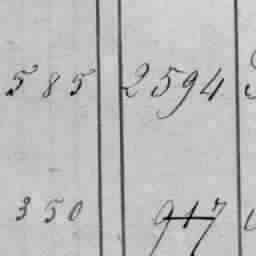 585 2594
350 917